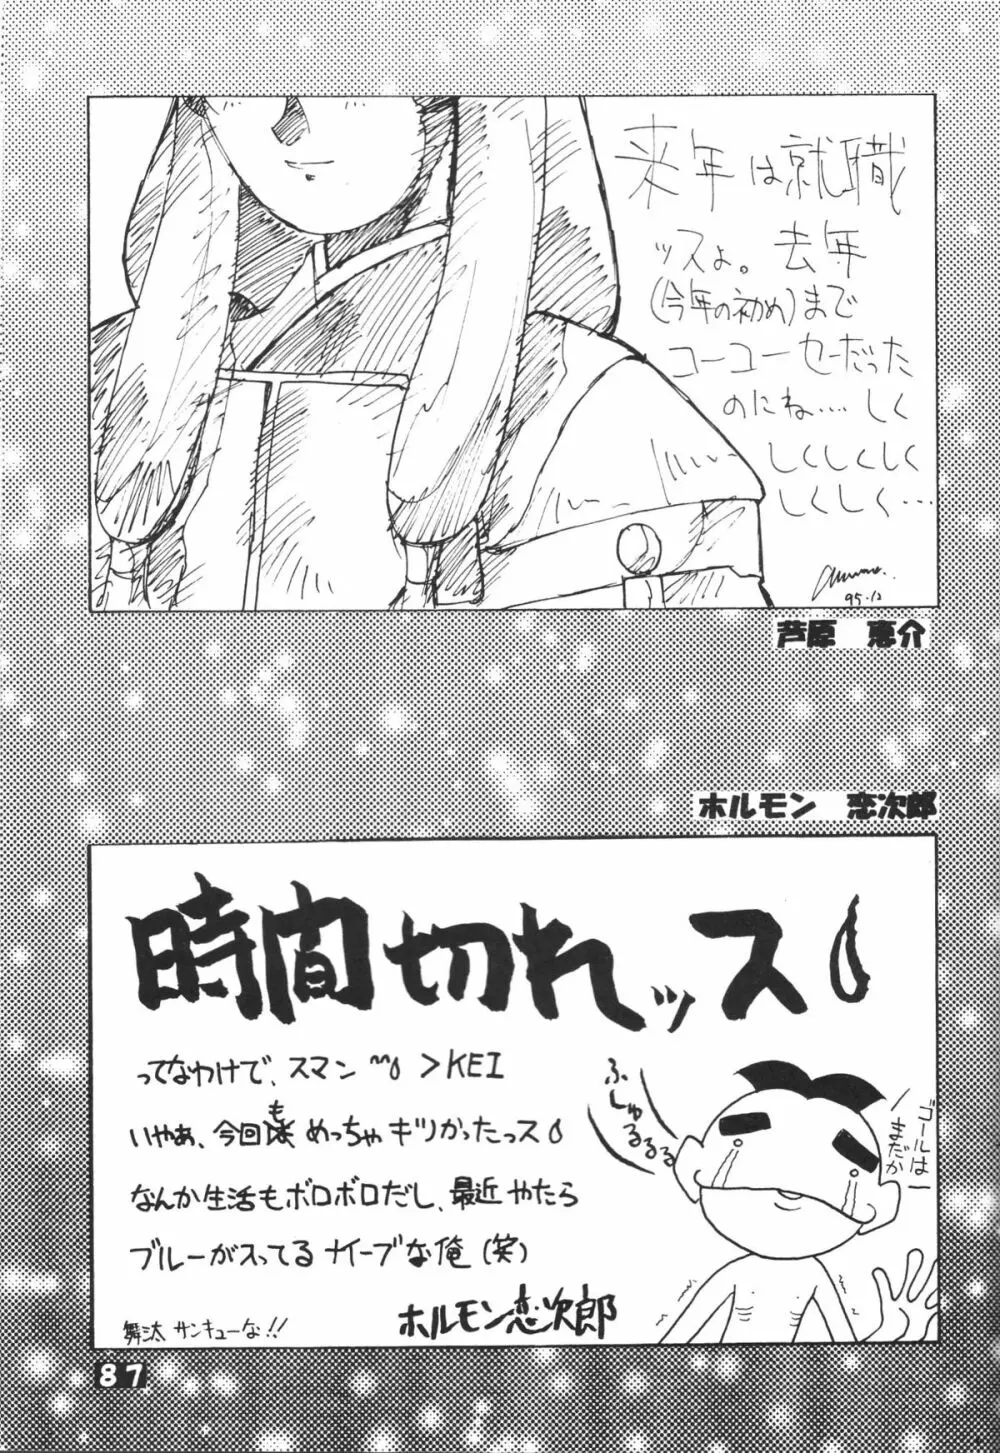 来年は就職
ッスよ。去年
(今年の初め)まで
コーコーセーだった
のにね…. しく
しくしくしく
しくしく…
95.12
芦原 恵介
ホルモン 恋次郎
時間切れッス
ってなわけで、スマン >KEI
いやぁ、今回も めっちゃキツかったっス
なんか生活もボロボロだし、最近やたら
ブルーが入ってるナイーブな俺(笑)
ホルモン恋次郎
舞汰 サンキューな!!
ふしゅるるるる
ゴールは
まだかー
87